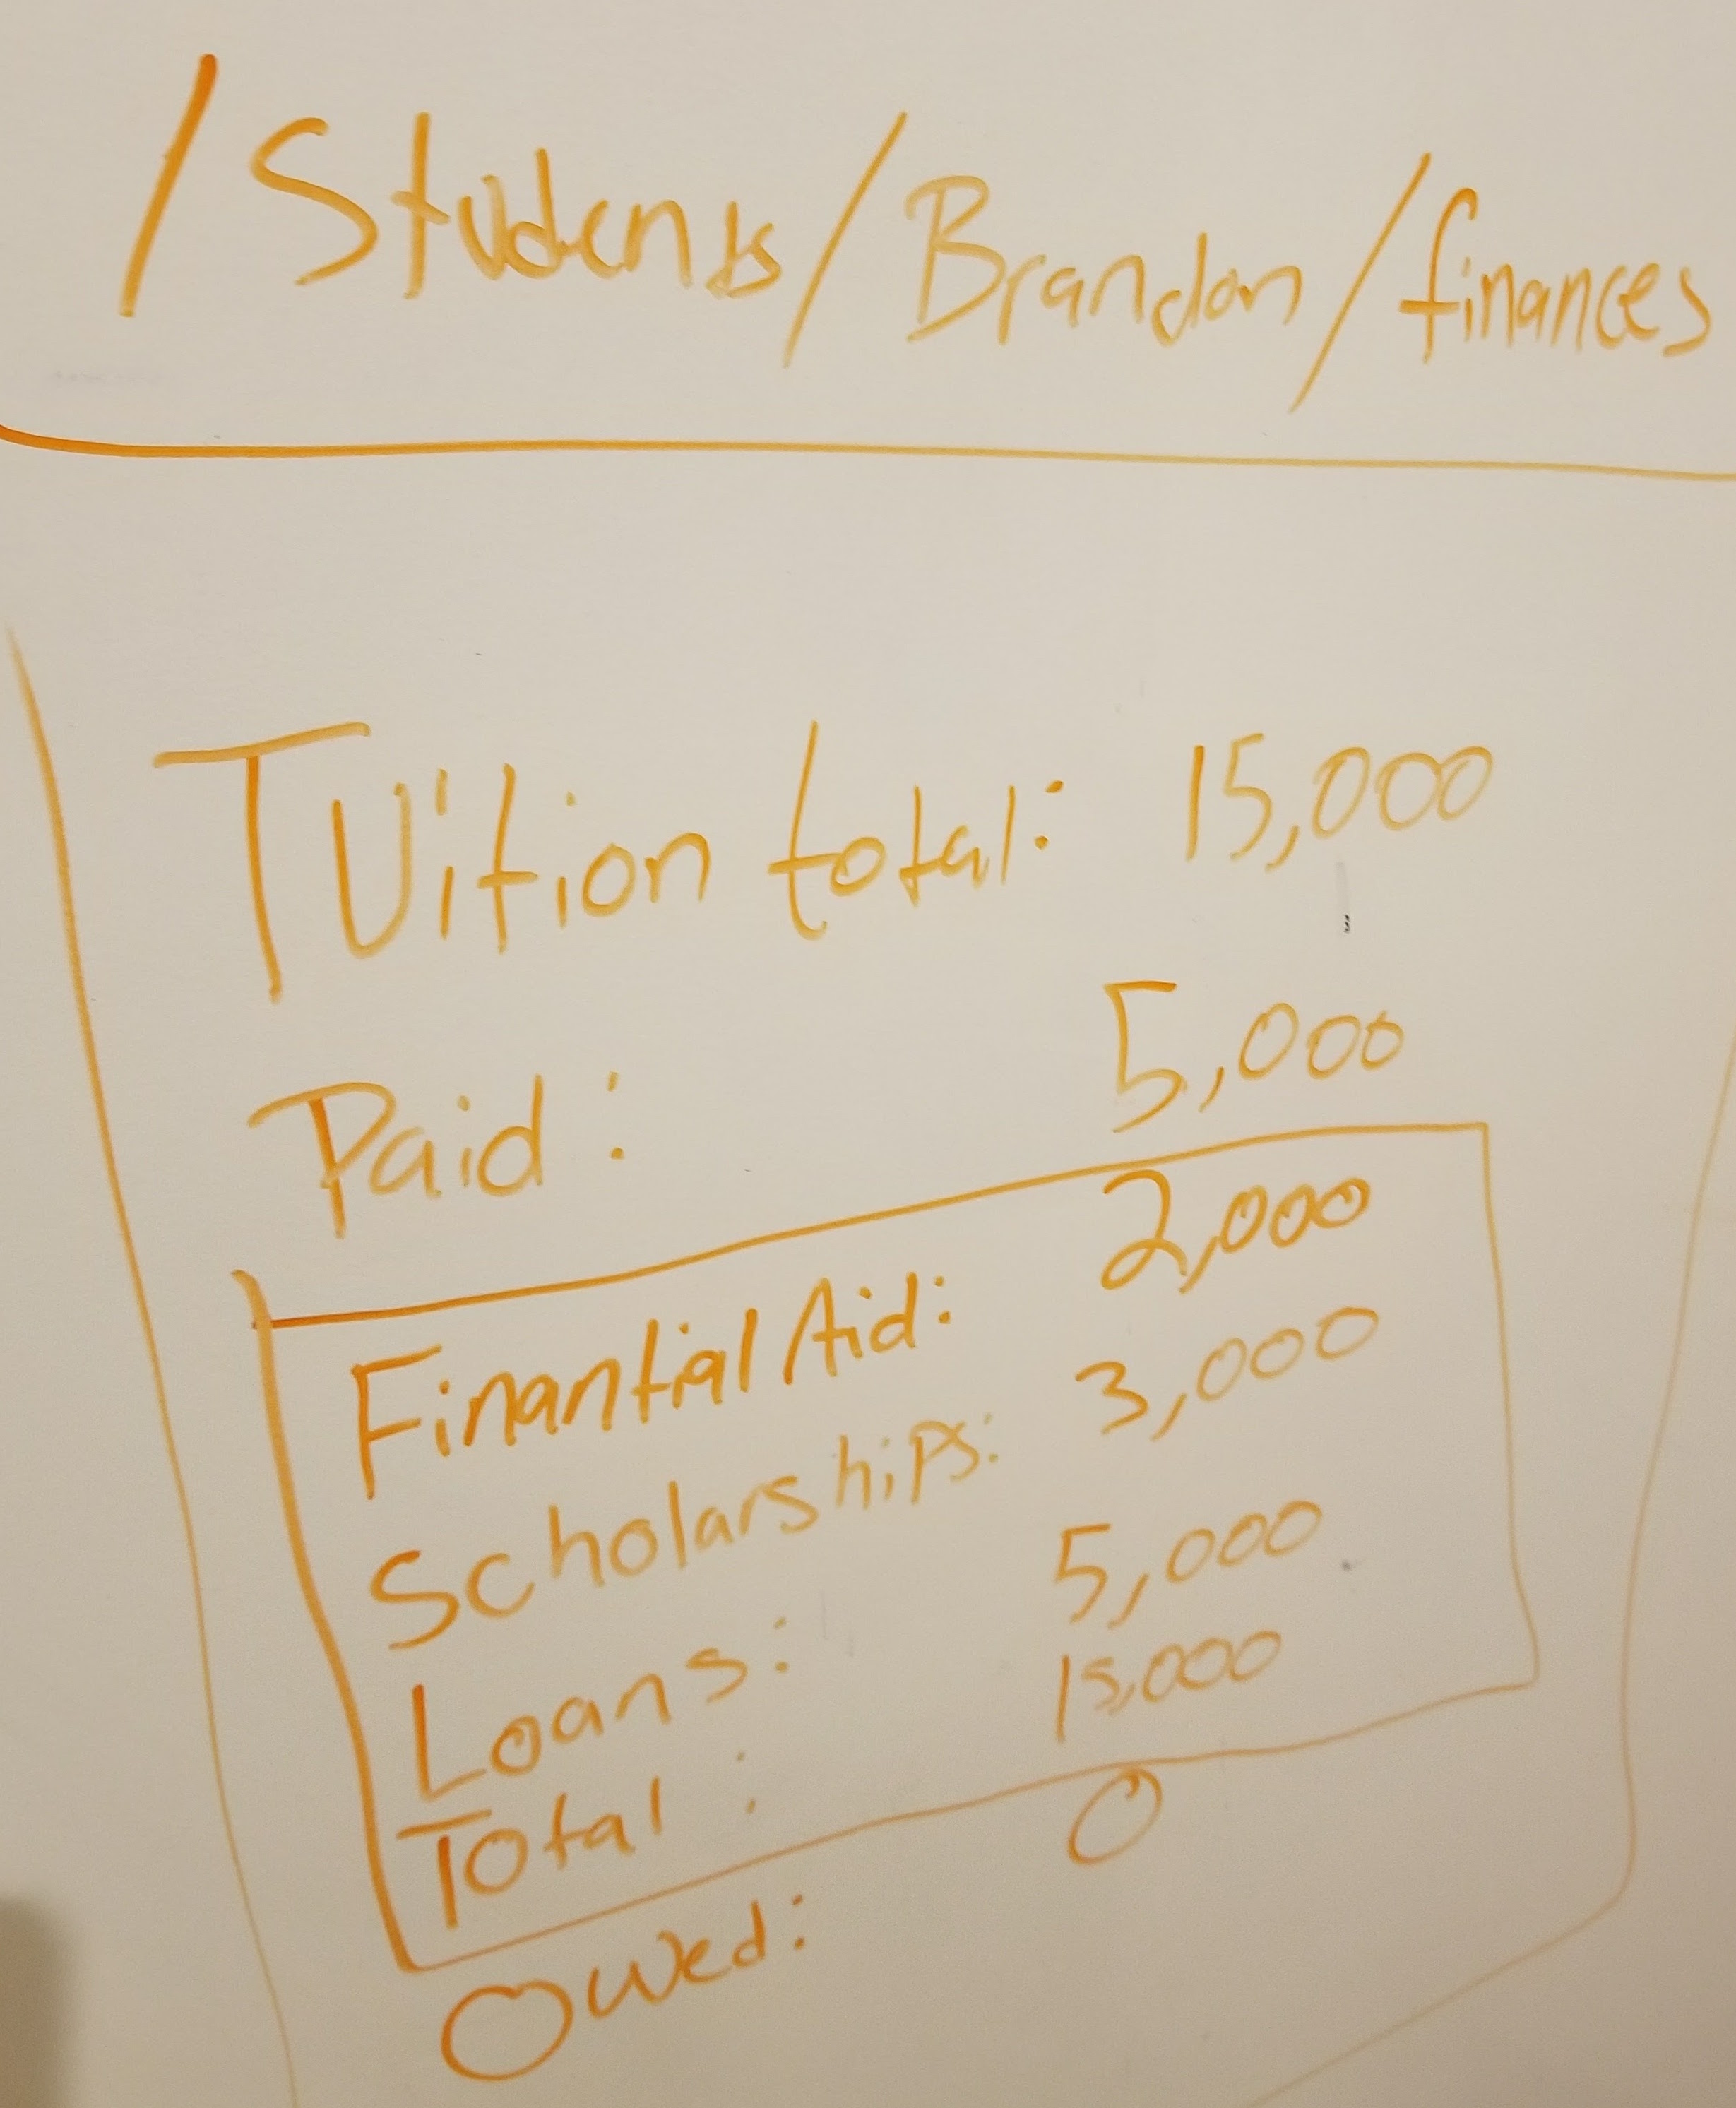 /Students/Brandon/finances
Tuition total: 15,000
Paid: 5,000
Finantial Aid: 2,000
Scholarships: 3,000
Loans: 5,000
Total: 15,000
Owed: 0